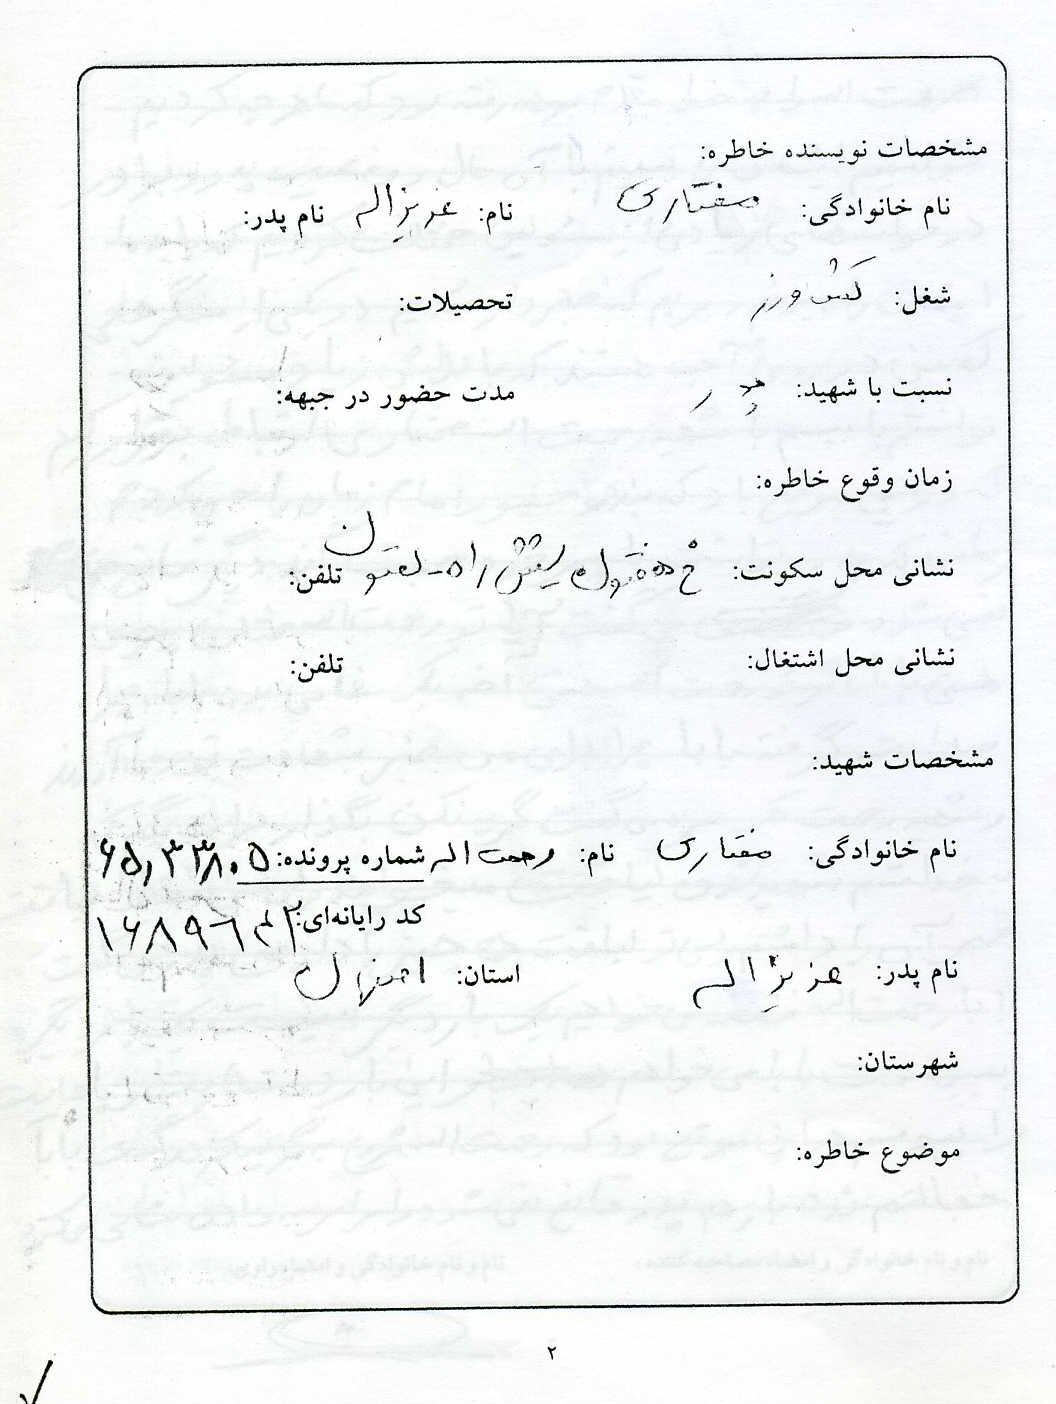 مشخصات نویسنده خاطره:
نام خانوادگی: مختاری نام: عزیزاله نام پدر:
شغل: کشاورز تحصیلات:
نسبت با شهید: پدر مدت حضور در جبهه:
زمان وقوع خاطره:
نشانی محل سکونت: خ تلفن:
نشانی محل اشتغال: تلفن:
مشخصات شهید:
نام خانوادگی: مختاری نام: رحمت اله شماره پرونده:
کد رایانه‌ای:
نام پدر: عزیزاله استان: اصفهان
شهرستان:
موضوع خاطره:
۲